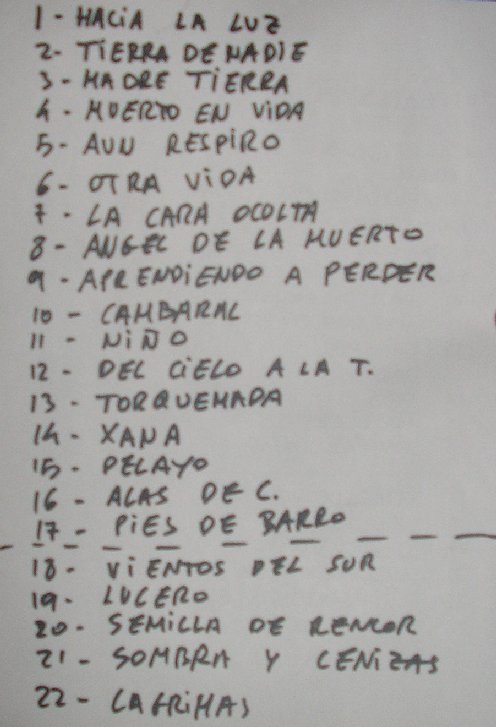 1 - HACIA LA LUZ
2 - TIERRA DE NADIE
3 - MADRE TIERRA
4 - MUERTO EN VIDA
5 - AUN RESPIRO
6 - OTRA VIDA
7 - LA CARA OCOLTA
8 - ANGEL DE LA MUERTO
9 - APRENDIENDO A PERDER
10 - CAMBARAL
11 - NIÑO
12 - DEL CIELO A LA T.
13 - TORQUEMADA
14 - XANA
15 - PELAYO
16 - ALAS DE C.
17 - PIES DE BARRO
18 - VIENTOS DEL SUR
19 - LUCERO
20 - SEMILLA DE RENCOR
21 - SOMBRA Y CENIZAS
22 - LAGRIMAS